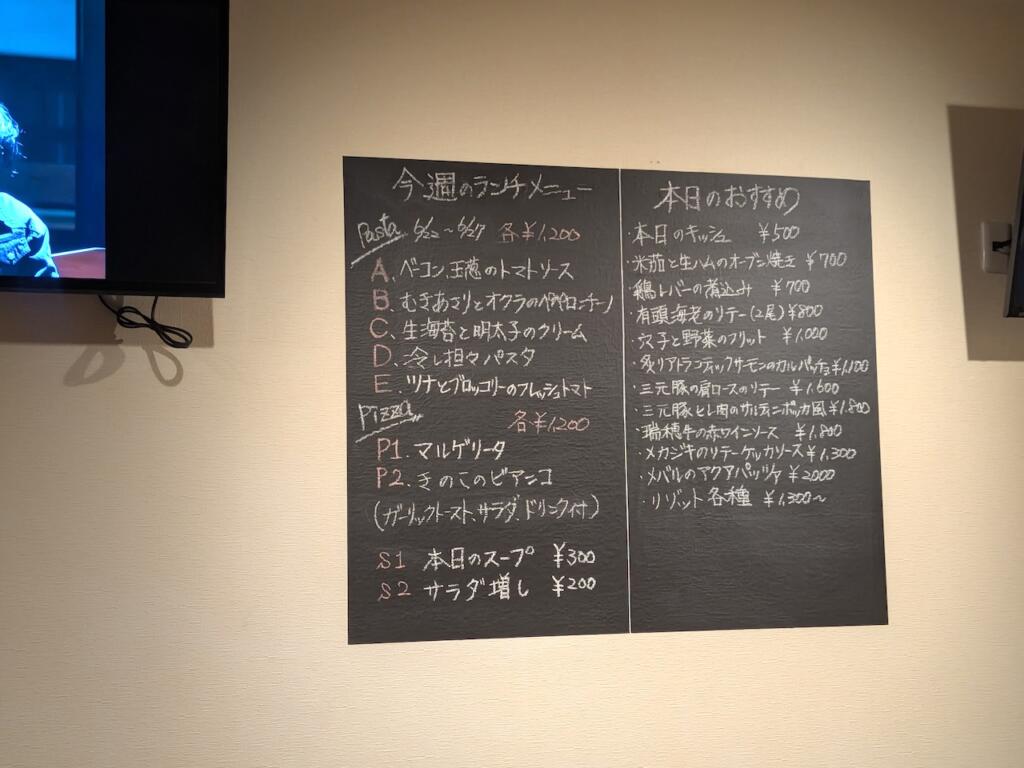 今週のランチメニュー
Pasta 6/22〜6/27 各¥1,200
A. ベーコン、玉葱のトマトソース
B. むきあさりとオクラのペペロンチーノ
C. 生海苔と明太子のクリーム
D. 冷し担々パスタ
E. ツナとブロッコリーのフレッシュトマト
Pizza 各¥1,200
P1. マルゲリータ
P2. きのこのビアンコ
(ガーリックトースト、サラダ、ドリンク付)
S1 本日のスープ ¥300
S2 サラダ増し ¥200
本日のおすすめ
・本日のキッシュ ¥500
・米茄と生ハムのオーブン焼き ¥700
・鶏レバーの煮込み ¥700
・有頭海老のソテー(2尾) ¥800
・穴子と野菜のフリット ¥1,000
・炙りアトランティックサーモンのカルパッチョ ¥1,100
・三元豚の肩ロースのソテー ¥1,600
・三元豚ヒレ肉のサルティンボッカ風 ¥1,800
・瑞穂牛の赤ワインソース ¥1,800
・メカジキのソテーケッカソース ¥1,300
・メバルのアクアパッツァ ¥2000
・リゾット各種 ¥1,300〜